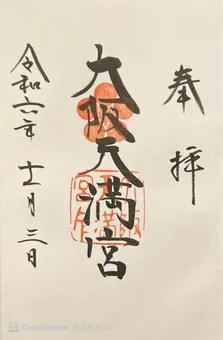 奉拝
大阪天満宮
令和六年 十一月三日
CamScanner